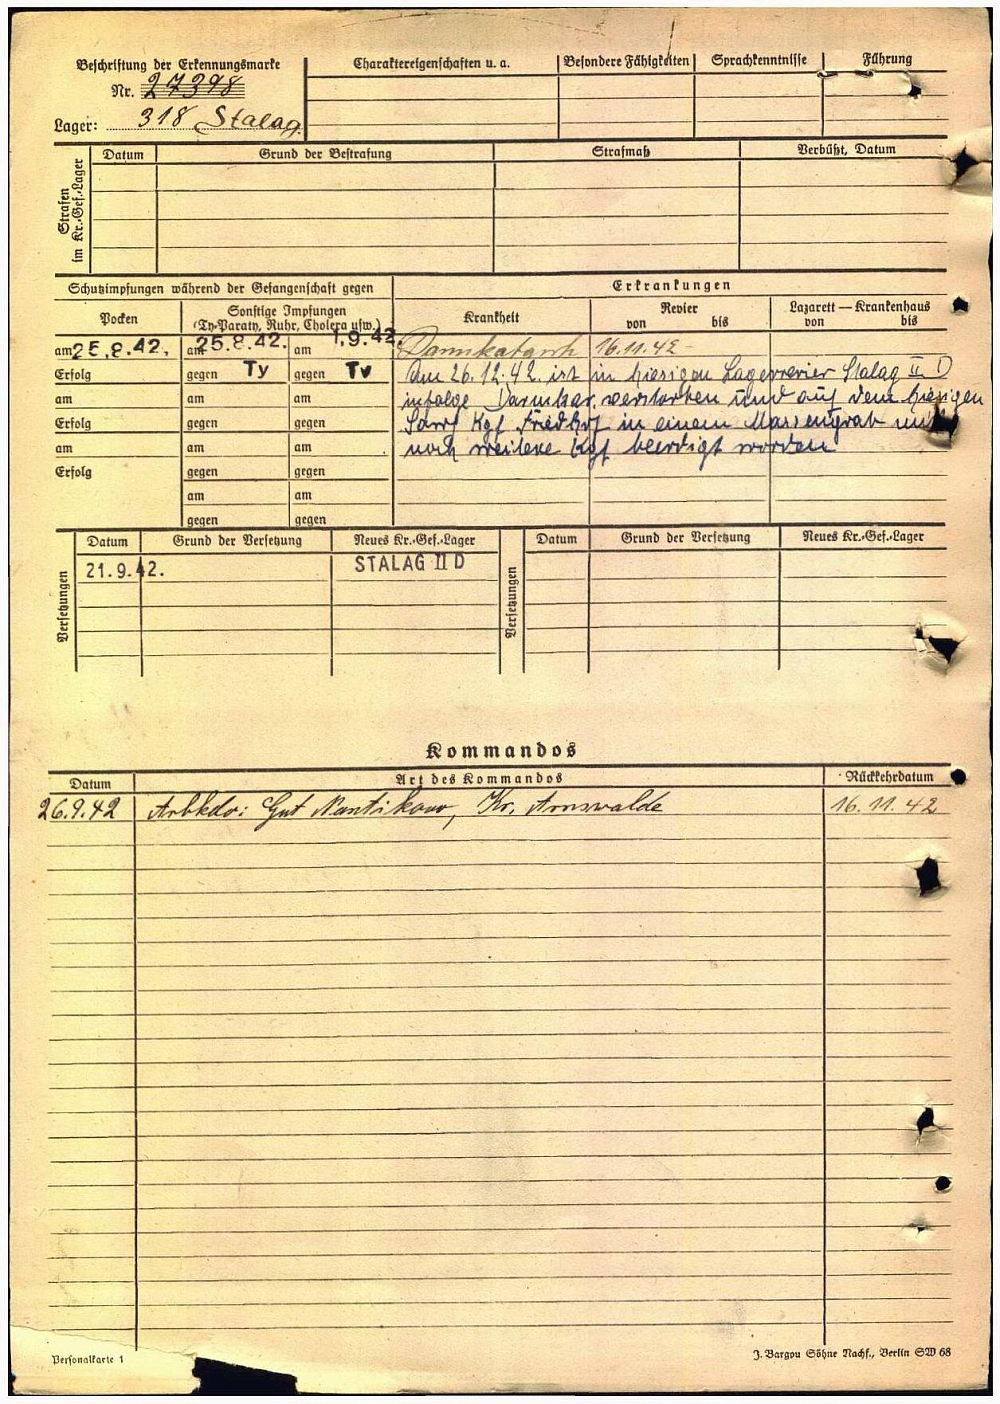 Beschriftung der Erkennungsmarke
Nr. 27398
Lager: 318 Stalag
Charaktereigenschaften u. a.
Besondere Fähigkeiten
Sprachkenntnisse
Führung
Strafen im Kr.-Gef.-Lager
Datum
Grund der Bestrafung
Strafmaß
Verbüßt, Datum
Schutzimpfungen während der Gefangenschaft gegen
Erkrankungen
Pocken
Sonstige Impfungen
(Ty-Paraty, Ruhr, Cholera usw.)
Krankheit
Revier
von bis
Lazarett — Krankenhaus
von bis
am 25.8.42. am 25.8.42. am 1.9.42. Darmkatarrh 16.11.42 -
Erfolg gegen Ty gegen Ty Am 26.12.42. ist in hiesigen Lagerrevier Stalag II D
am am am infolge Darmkat. verstorben und auf dem hiesigen
Erfolg gegen gegen Kgf Friedhof in einem Massengrab mit
am am am noch weitere Kgf beerdigt worden
Erfolg gegen gegen
am am
gegen gegen
Versetzungen
Datum
Grund der Versetzung
Neues Kr.-Gef.-Lager
21.9.42. STALAG II D
Versetzungen
Datum
Grund der Versetzung
Neues Kr.-Gef.-Lager
Kommandos
Datum
Art des Kommandos
Rückkehrdatum
26.9.42 Arbkdo: Gut Nantikow, Kr. Arnswalde 16.11.42
Personalkarte 1
J. Bargou Söhne Nachf., Berlin SW 68